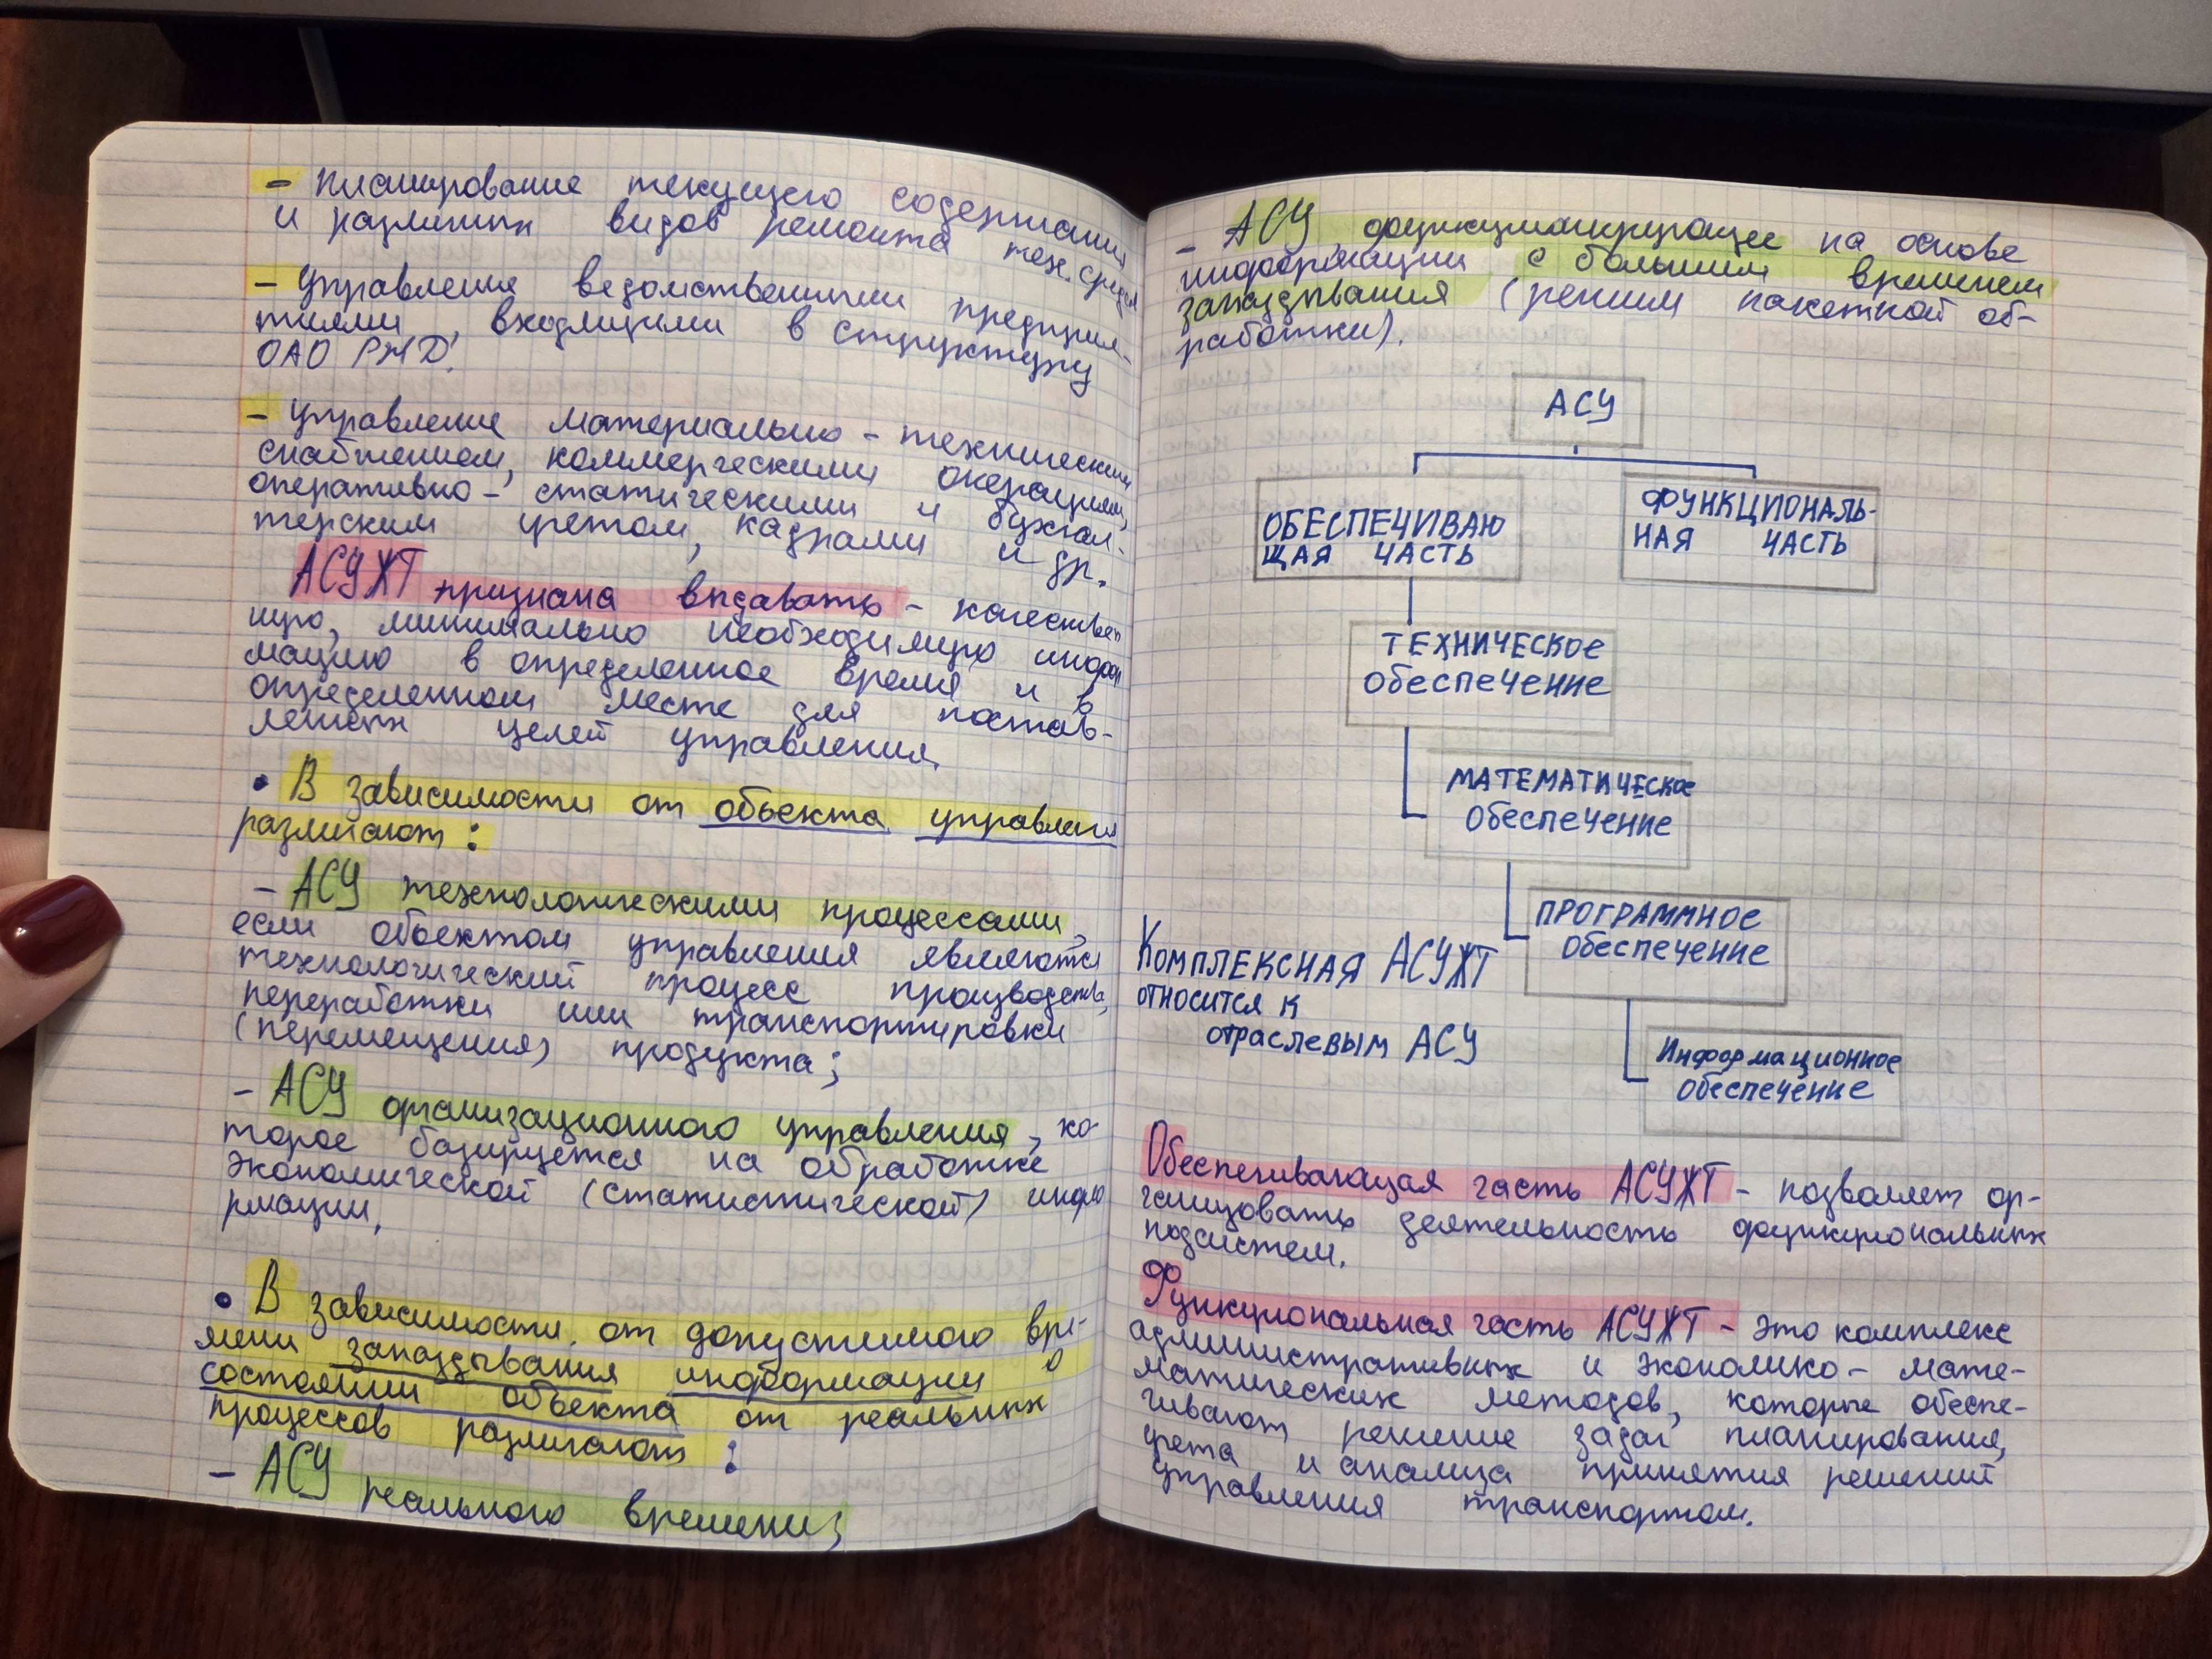 - планирование текущего содержания
и различных видов ремонта тех. средств
- управление ведомственными предприя-
тиями, входящими в структуру
ОАО РЖД.
- управление материально - техническим
снабжением, коммерческими операциями,
оперативно - статическими и бухгал-
терским учетом, кадрами и др.
АСУЖТ призвана выдавать - качествен
ную, минимально необходимую инфор
мацию в определенное время и в
определенном месте для постав-
ленных целей управления.
• В зависимости от объекта управления
различают:
- АСУ технологическими процессами,
если объектом управления являются
технологический процесс производства,
переработки или транспортировки
(перемещения) продукта;
- АСУ организационного управления, ко-
торое базируется на обработке
экономической (статистической) инфо
рмации,
• В зависимости от допустимого вре-
мени запаздывания информации о
состоянии объекта от реальных
процессов различают:
- АСУ реального времени;
- АСУ функционирующее на основе
информации с большим временем
запаздывания (режим пакетной об-
работки).
АСУ
ОБЕСПЕЧИВАЮ
ЩАЯ ЧАСТЬ
ФУНКЦИОНАЛЬ-
НАЯ ЧАСТЬ
ТЕХНИЧЕСКОЕ
обеспечение
МАТЕМАТИЧЕСКОЕ
обеспечение
ПРОГРАММНОЕ
обеспечение
Комплексная АСУЖТ
относится к
отраслевым АСУ
Информационное
обеспечение
Обеспечивающая часть АСУЖТ - позволяет ор-
ганизовать деятельность функциональных
подсистем.
Функциональная часть АСУЖТ - это комплекс
административных и экономико - мате-
матических методов, которые обеспе-
чивают решение задач планирования,
учета и анализа принятия решений
управления транспортом.